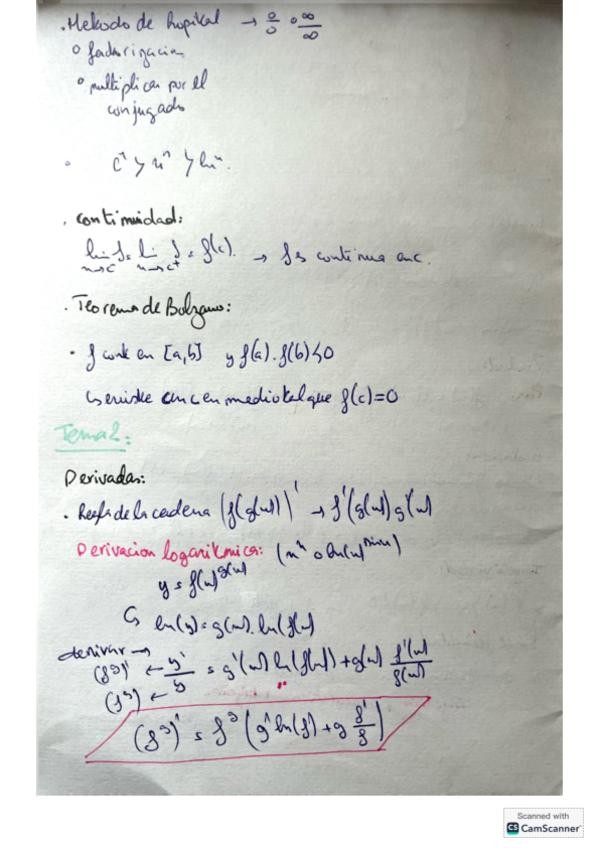 . Metodo de hopital → 0/0 o ∞/∞
o factorizacion
o multiplicar por el
conjugado
o C^n > n^n > ln^n.
. Continuidad:
lim f = lim f = f(c). → f es continua en c.
x→c⁻ x→c⁺
. Teorema de Bolzano:
• f cont en [a,b] y f(a).f(b)<0
↳ existe un c en medio tal que f(c)=0
Tema 2:
Derivadas:
. Regla de la cadena (f(g(x)))' → f'(g(x)) g'(x)
Derivacion logaritmica:
y = f(x)^g(x)
↳ ln(y) = g(x). ln(f(x))
derivar →
(f^g)' ← y'/y = g'(x) ln(f(x)) + g(x) f'(x)/f(x)
(f^g) ←
(f^g)' = f^g (g' ln(f) + g f'/f)
Scanned with
CS CamScanner